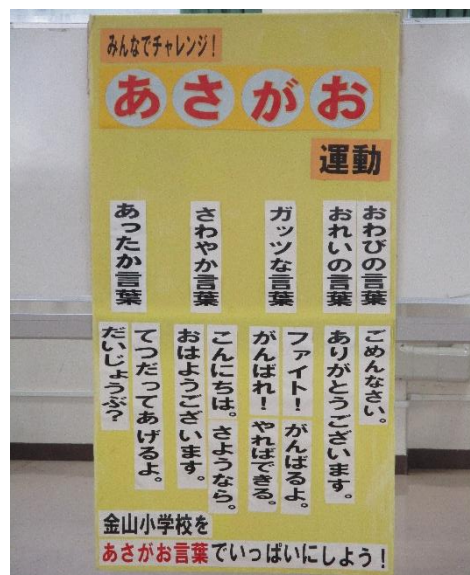 みんなでチャレンジ!
あさがお
運動
おわびの言葉
おれいの言葉
ガッツな言葉
さわやか言葉
あったか言葉
ごめんなさい。
ありがとうございます。
ファイト! がんばるよ。
がんばれ! やればできる。
こんにちは。さようなら。
おはようございます。
てつだってあげるよ。
だいじょうぶ?
金山小学校を
あさがお言葉でいっぱいにしよう!